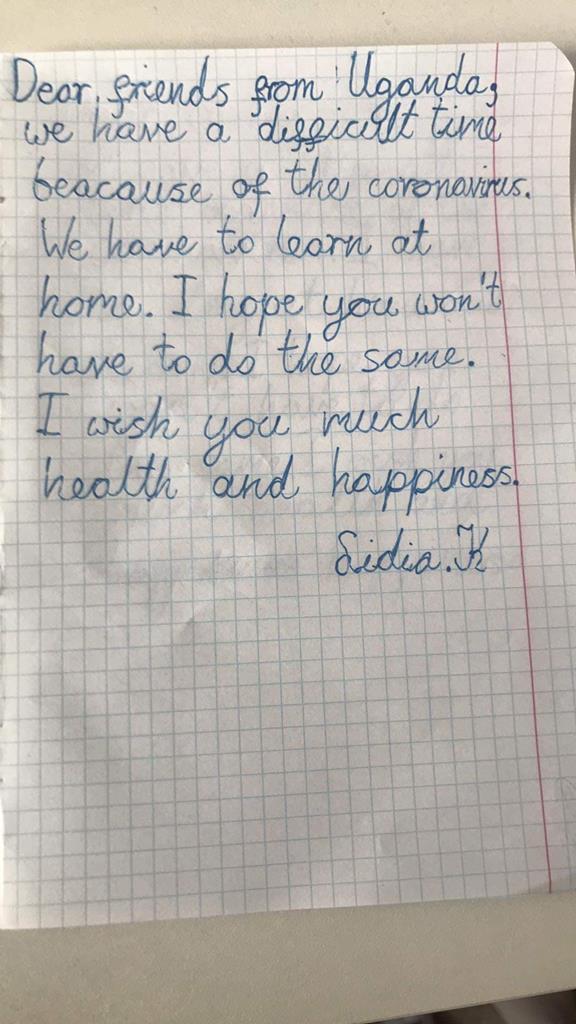 Dear friends from Uganda,
we have a difficult time
beacause of the coronavirus.
We have to learn at
home. I hope you won't
have to do the same.
I wish you much
health and happiness.
Lidia.K